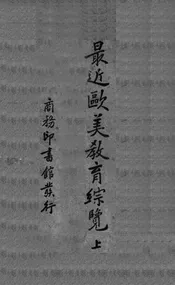 最近歐美教育綜覽上
商務印書館發行